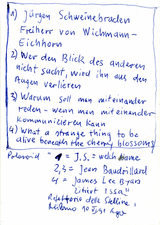 1) Jürgen Schweinebraden
Freiherr von Wichmann-
Eichhorn
2) Wer den Blick des anderen
nicht sucht, wird ihn aus den
Augen verlieren
3) Warum soll man miteinander
reden - wenn man miteinander
kommunizieren kann
4) What a strange thing to be
alive beneath the cherry blossoms
Polaroid 1 = J.S. = welch name
2,3 = Jean Baudrillard
4 = James Lee Byars
zitiert "Issa"